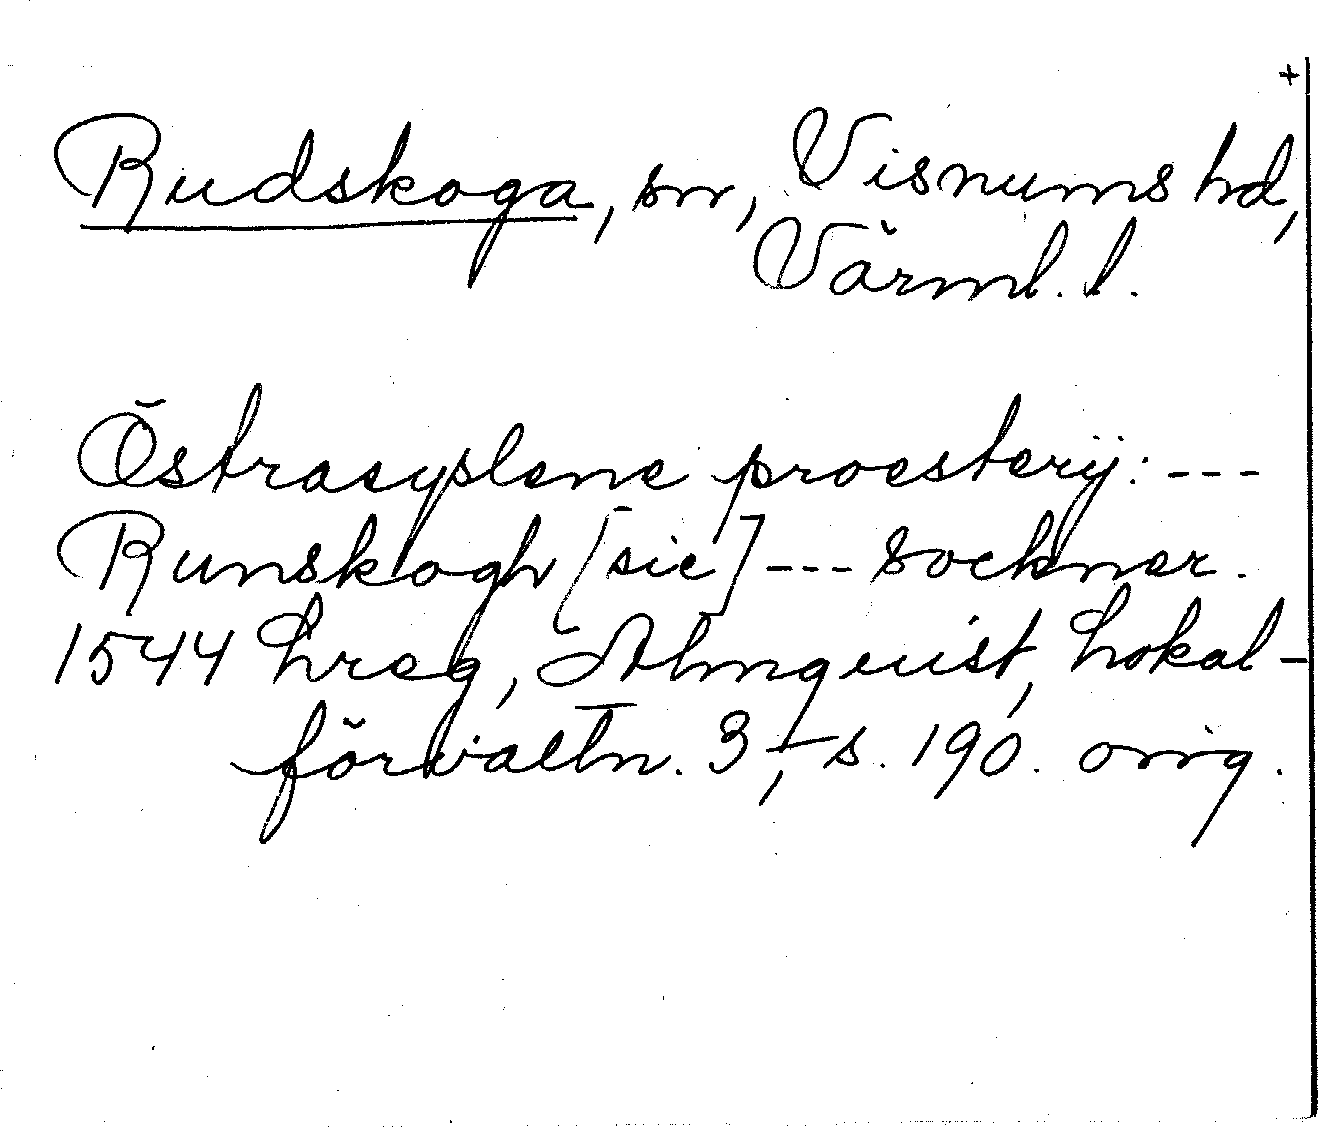 +
Rudskoga, sn, Visnums hd,
Värml. l.
Östrasyslene proesterÿ: ---
Runskogh [sic] --- sockner.
1544 Lreg, Almquist, Lokal-
förvaltn. 3, s. 190. orig.